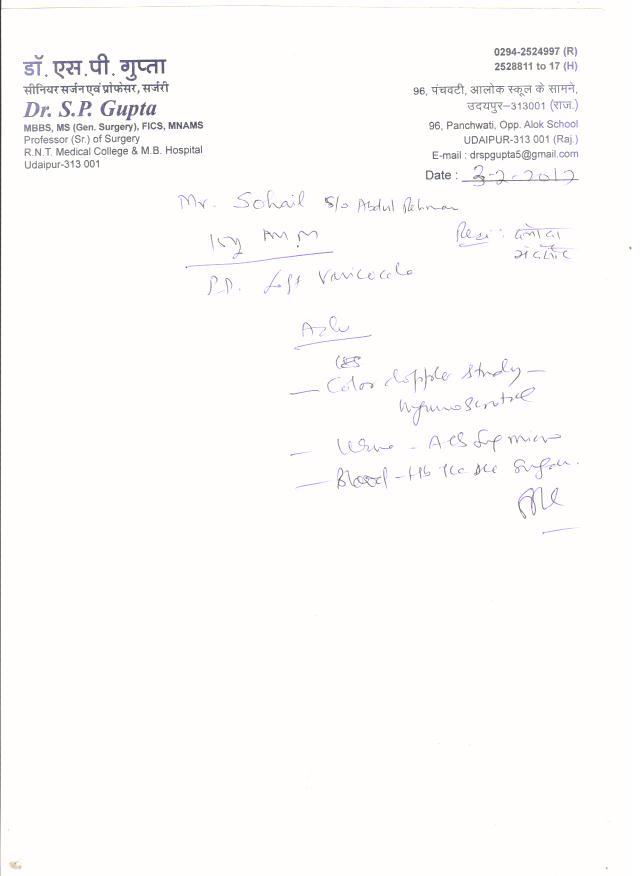 डॉ. एस.पी. गुप्ता
सीनियर सर्जन एवं प्रोफेसर, सर्जरी
Dr. S.P. Gupta
MBBS, MS (Gen. Surgery), FICS, MNAMS
Professor (Sr.) of Surgery
R.N.T. Medical College & M.B. Hospital
Udaipur-313 001
0294-2524997 (R)
2528811 to 17 (H)
96, पंचवटी, आलोक स्कूल के सामने,
उदयपुर-313001 (राज.)
96, Panchwati, Opp. Alok School
UDAIPUR-313 001 (Raj.)
E-mail : drspgupta5@gmail.com
Date : 3-2-2012
Mr. Sohail S/o Abdul Rehman
Left Varicocele
Color doppler study
Urine
Blood - Hb Sugar.